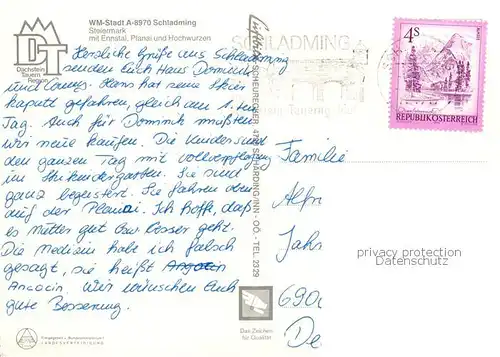 WM-Stadt A-8970 Schladming
Steiermark
mit Ennstal, Planai und Hochwurzen
DT
Dachstein
Tauern
Region
Herzliche Grüße aus Schladming
senden Euch Haus Dominik
und Hans hat seine Skier
kaputt gefahren, gleich am 1.
Tag. Auch für Dominik mußten
wir neue kaufen. Die Kinder sind
den ganzen Tag mit Vollverpflegung
im Skikindergarten. Sie sind
ganz begeistert. Sie fahren oben
auf der Planai. Ich hoffe, daß
es Mutter gut geht.
Die Medizin habe ich falsch
gesagt, sie heißt
Ancocin. Wir wünschen Euch
gute Besserung.
LANDESVERTEIDIGUNG
SCHÄRDING/INN - OÖ. - TEL. 2329
Das Zeichen
für Qualität
SCHLADMING
4S
REPUBLIK ÖSTERREICH
Familie
Alfr
Jahr
690
De
privacy protection
Datenschutz